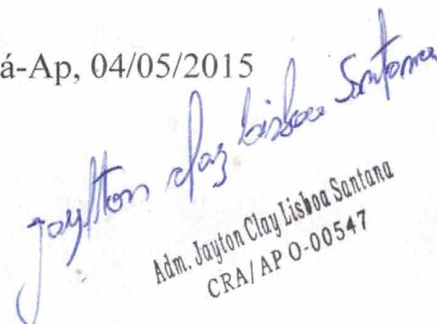 á-Ap, 04/05/2015
Jayton Clay Lisboa Santana
Adm. Jayton Clay Lisboa Santana
CRA/AP O-00547